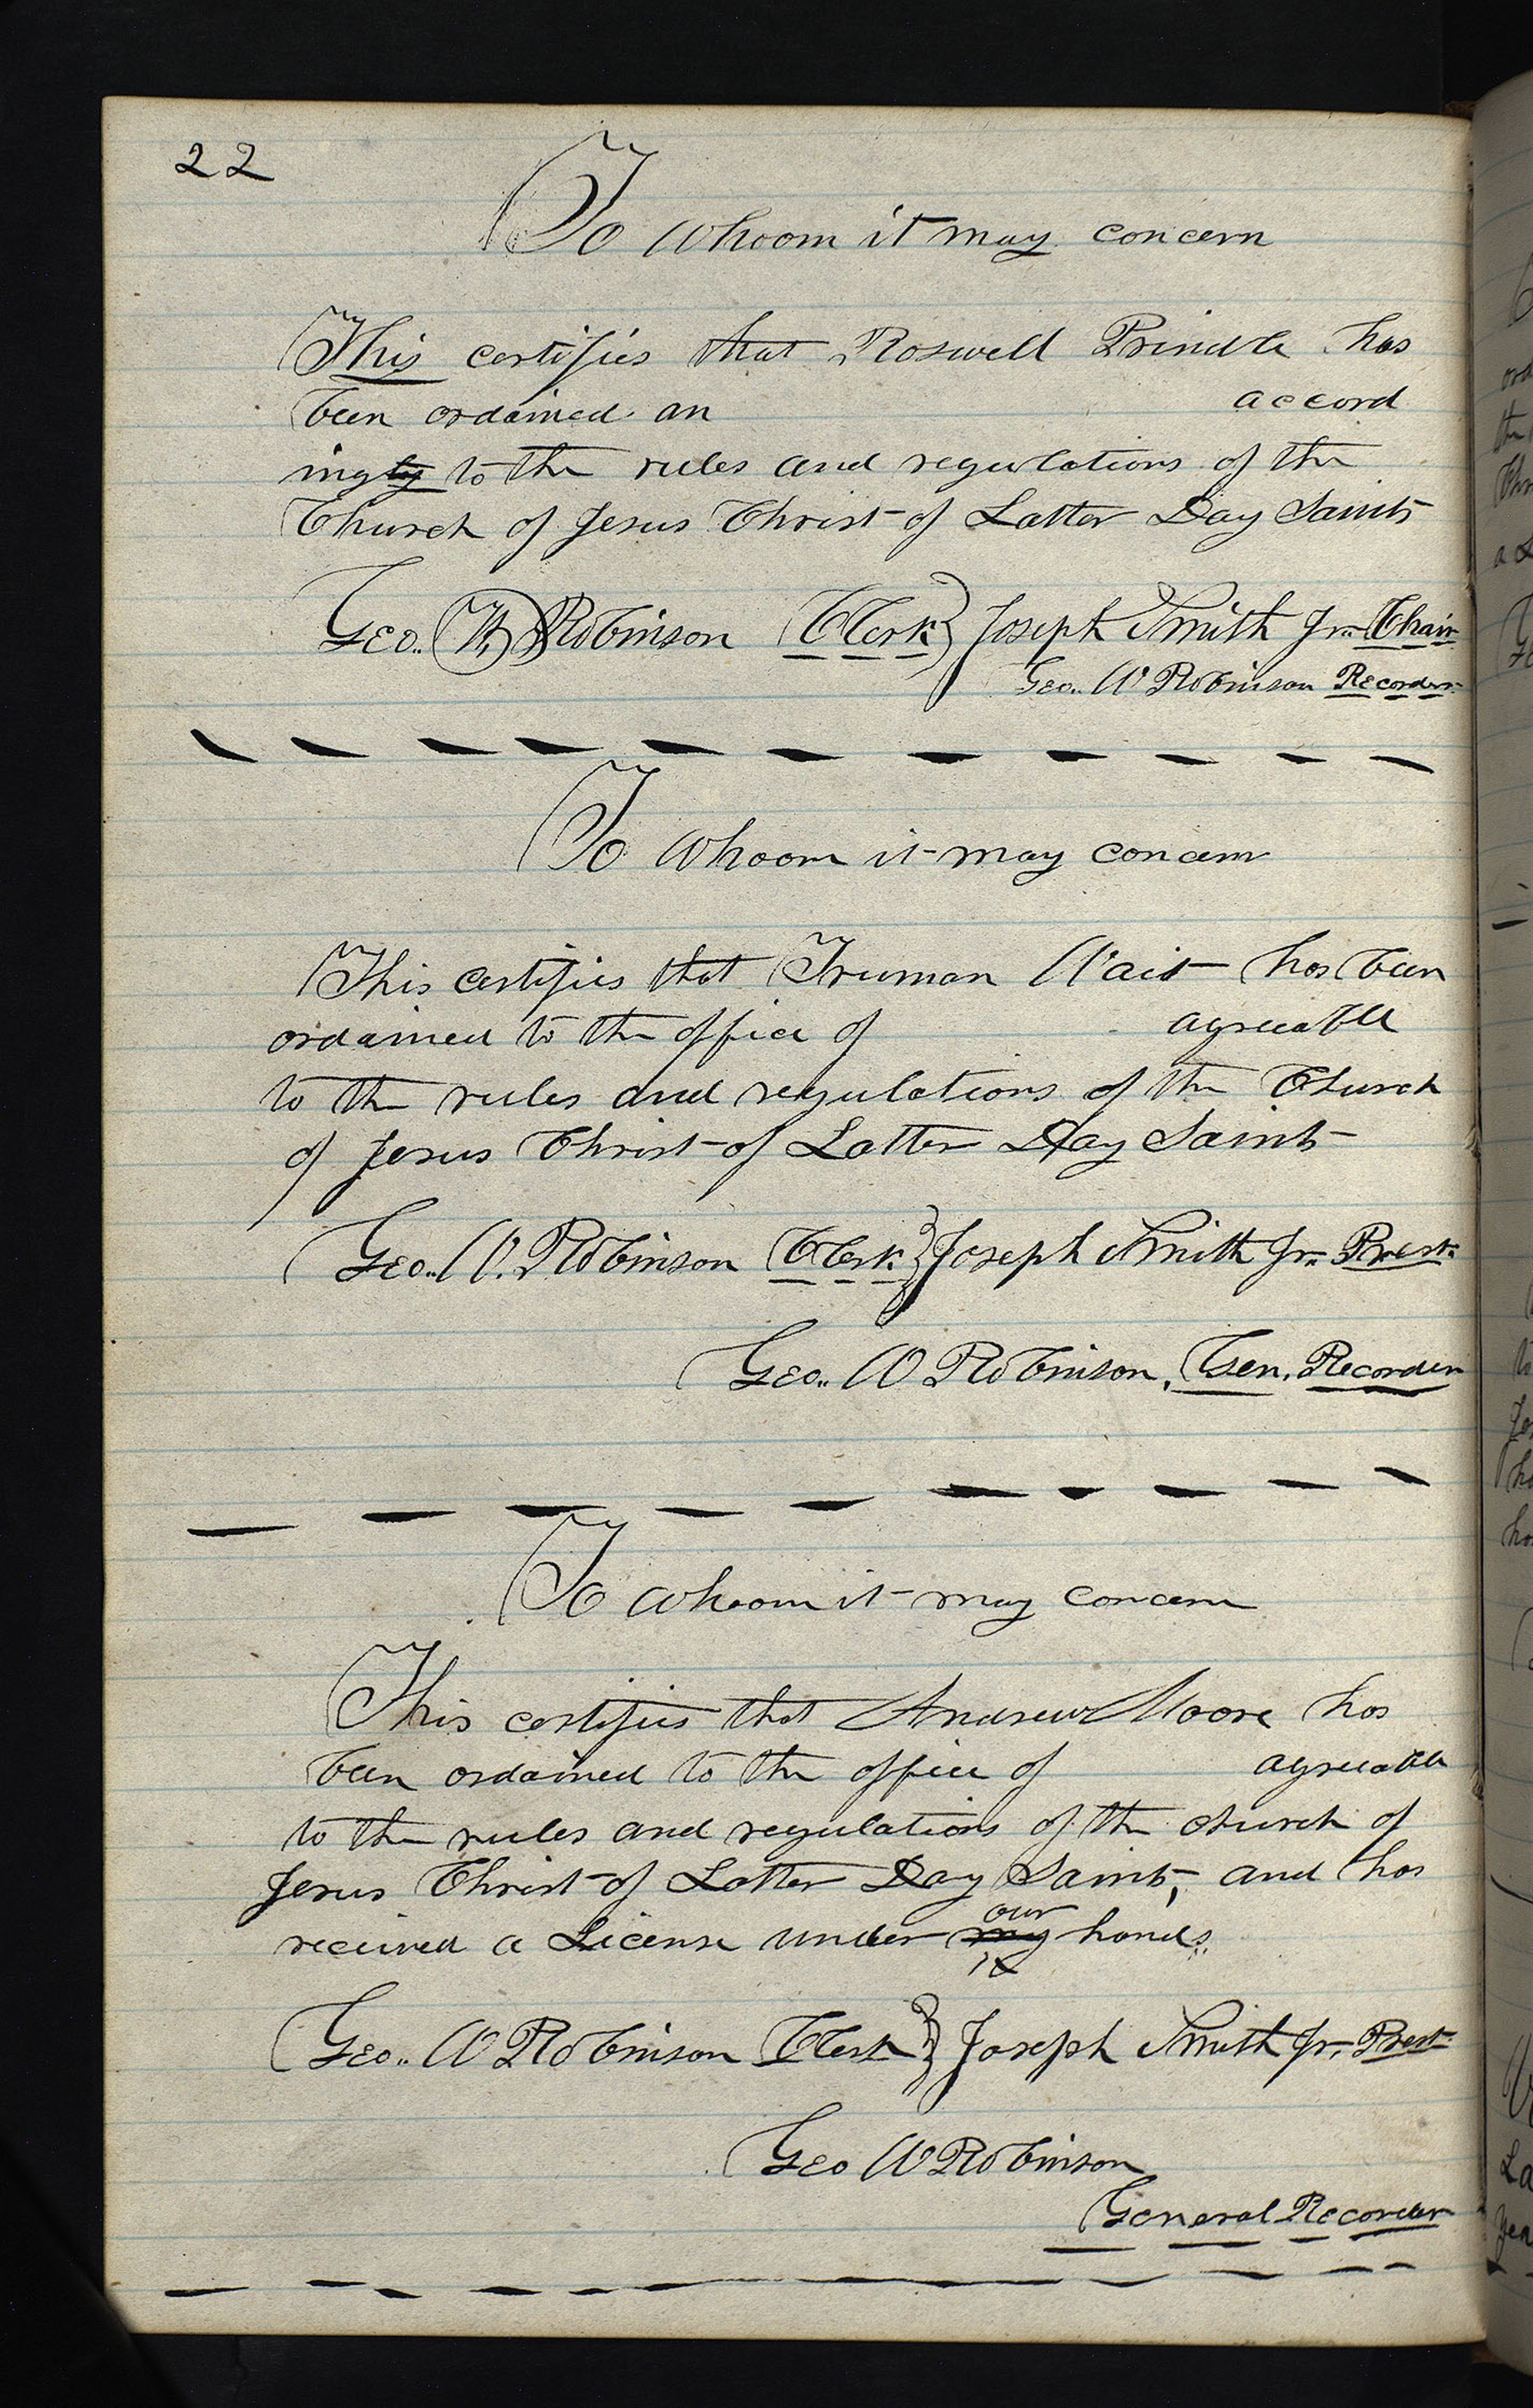 22
To whoom it may concern
This certifies that Roswell Prindle has
been ordained an accord
ingly to the rules and regulations of the
Church of Jesus Christ of Latter Day Saints
Geo.. W. Robinson Clerk } Joseph Smith Jr. Chair
Geo.. W Robinson Recorder.
To whoom it may concern
This certifies that Truman Wait has been
ordained to the office of agreeable
to the rules and regulations of the Church
of Jesus Christ of Latter Day Saints
Geo.. W. Robinson Clerk } Joseph Smith Jr. Prest.
Geo.. W Robinson, Gen. Recorder
To whoom it may concern
This certifies that Andrew Moore has
been ordained to the office of agreeable
to the rules and regulations of the church of
Jesus Christ of Latter Day Saints, and has
our
received a License under my hands..
Geo.. W Robinson Clerk } Joseph Smith Jr. Prest.
Geo W Robinson
General Recorder